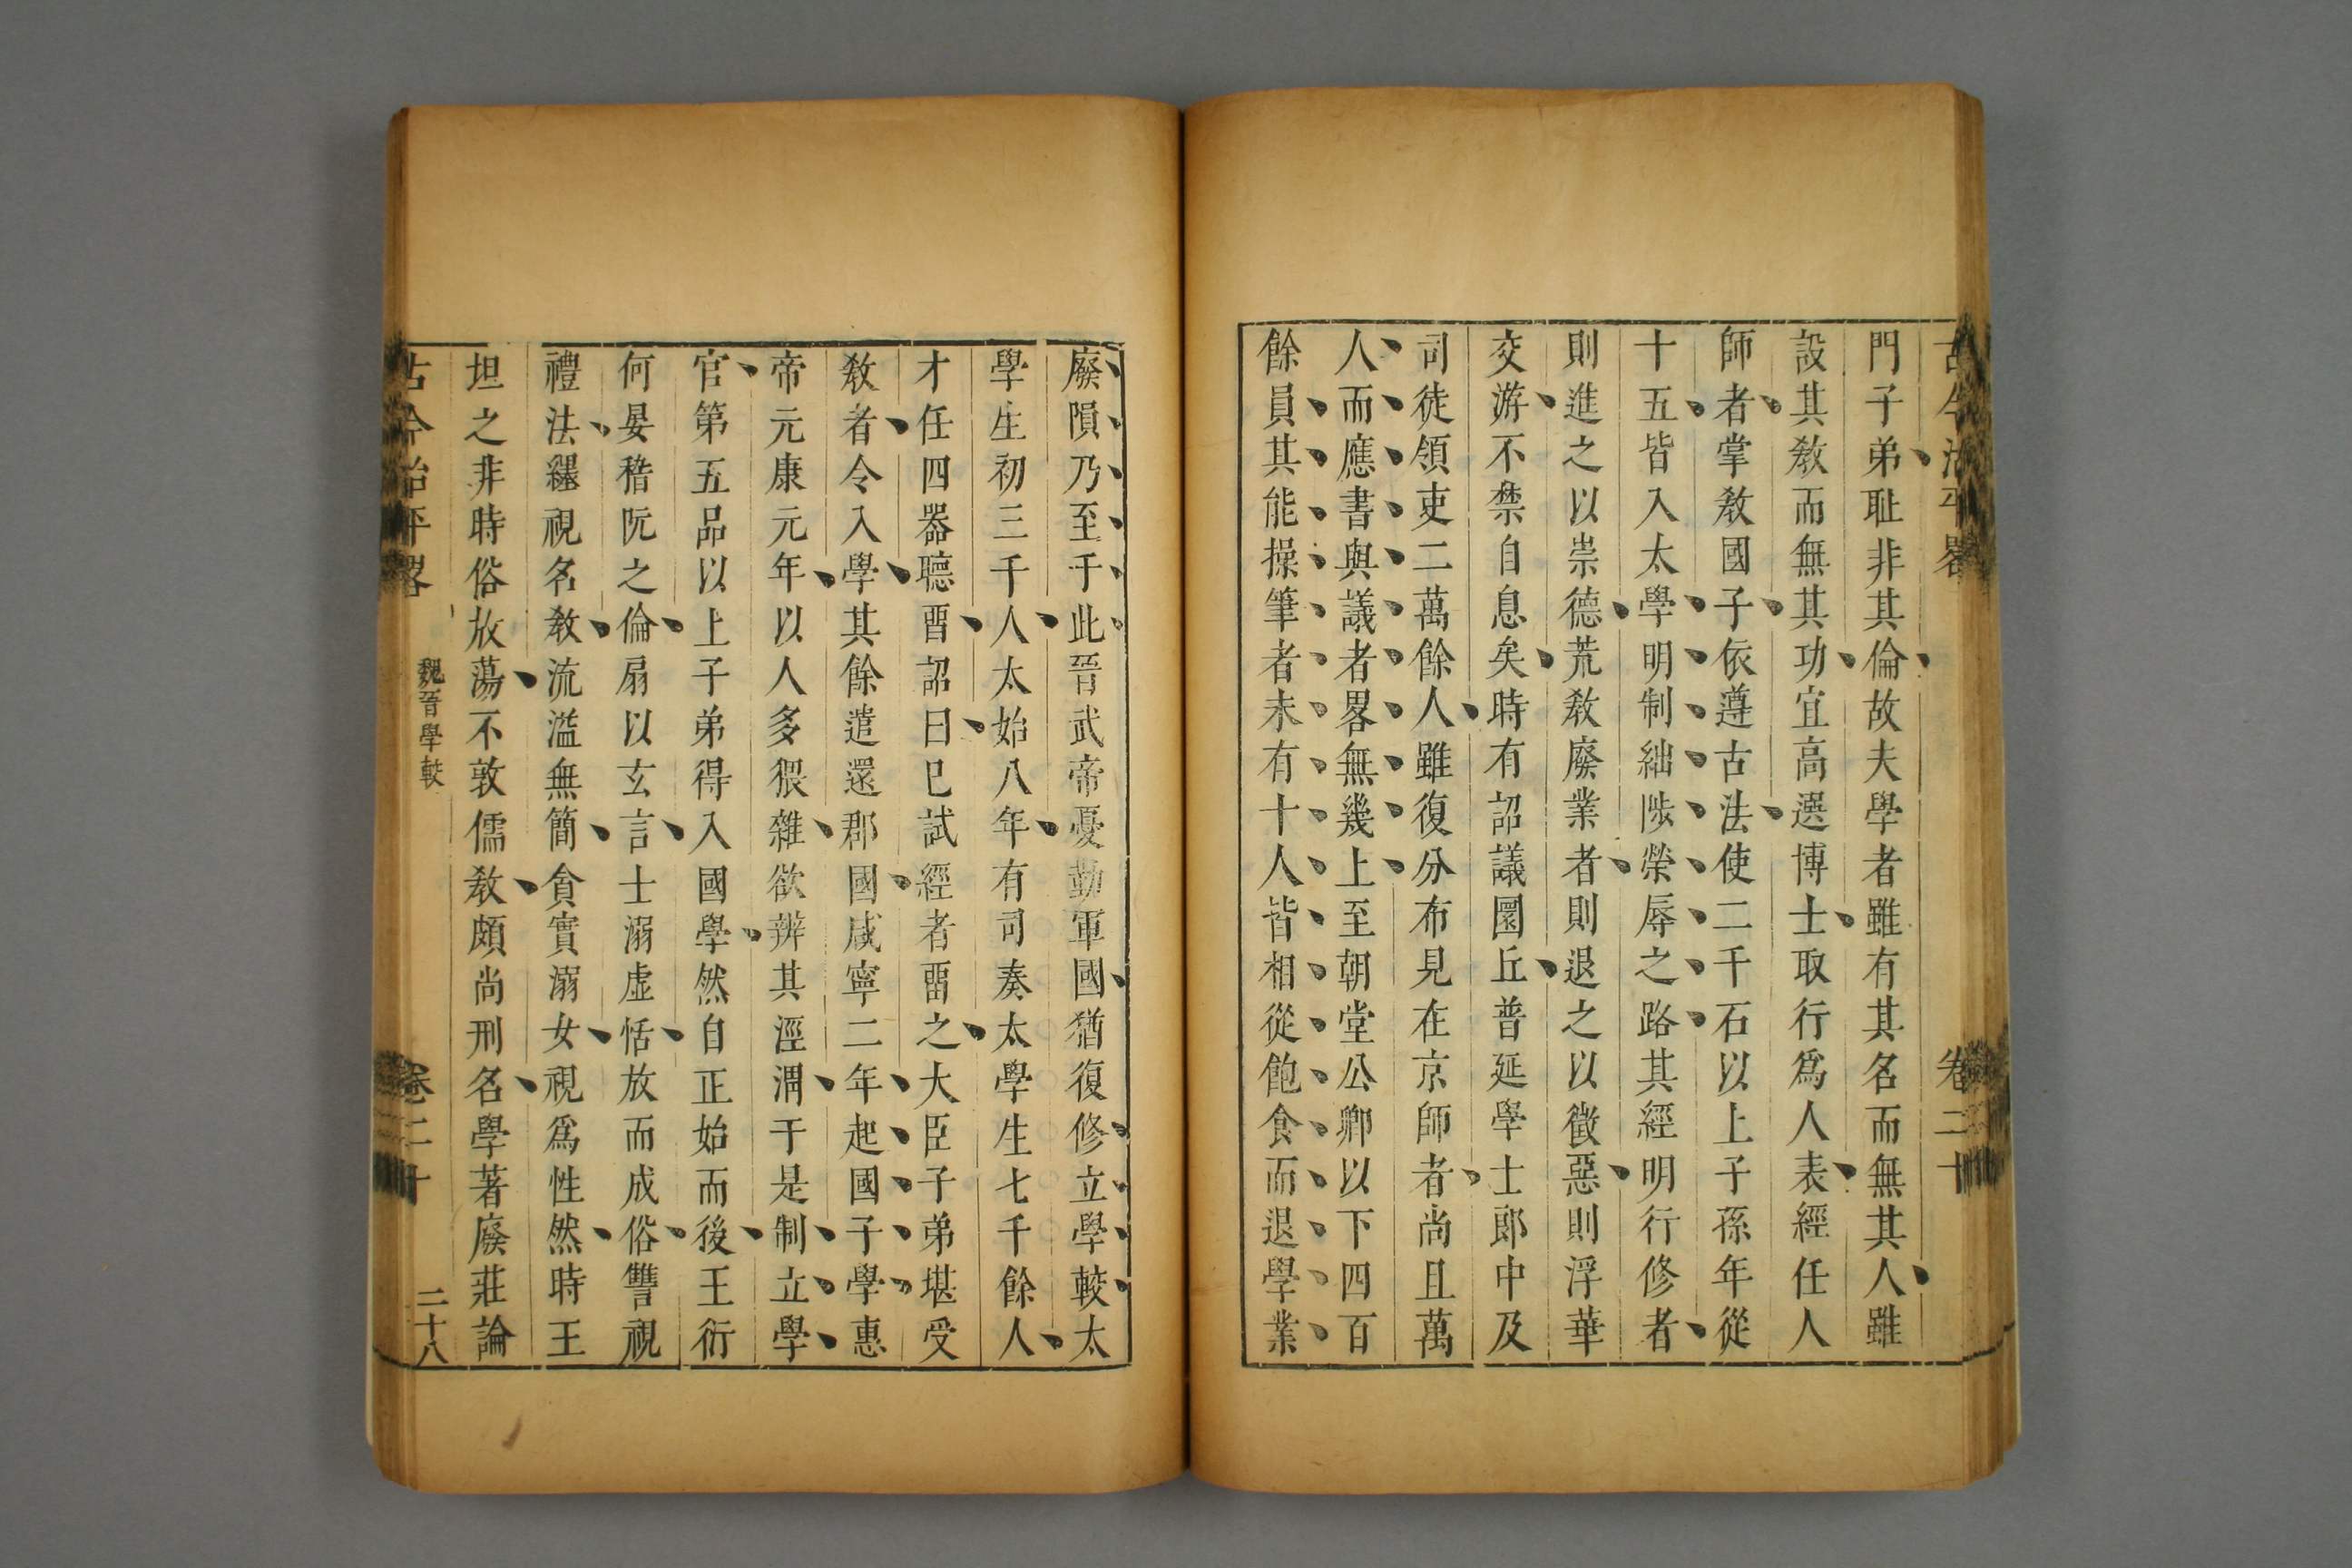 古今治平畧 卷二十
門子弟耻非其倫故夫學者雖有其名而無其人雖
設其敎而無其功宜高選博士取行爲人表經任人
師者掌敎國子依遵古法使二千石以上子孫年從
十五皆入太學明制絀陟榮辱之路其經明行修者
則進之以崇德荒敎廢業者則退之以徵惡則浮華
交游不禁自息矣時有詔議圜丘普延學士郎中及
司徒領吏二萬餘人雖復分布見在京師者尚且萬
人而應書與議者畧無幾上至朝堂公卿以下四百
餘員其能操筆者未有十人皆相從飽食而退學業
廢隕乃至于此晉武帝憂勤軍國猶復修立學較太
學生初三千人太始八年有司奏太學生七千餘人
才任四器聽畱詔曰巳試經者畱之大臣子弟堪受
敎者令入學其餘遣還郡國咸寧二年起國子學惠
帝元康元年以人多猥雜欲辨其涇渭于是制立學
官第五品以上子弟得入國學然自正始而後王衍
何晏稽阮之倫扇以玄言士溺虛恬放而成俗讐視
禮法纆視名敎流滥無簡貪實溺女視爲性然時王
坦之非時俗放蕩不敦儒敎頗尚刑名學著廢莊論
古今治平畧 魏晉學較 卷二十 二十八